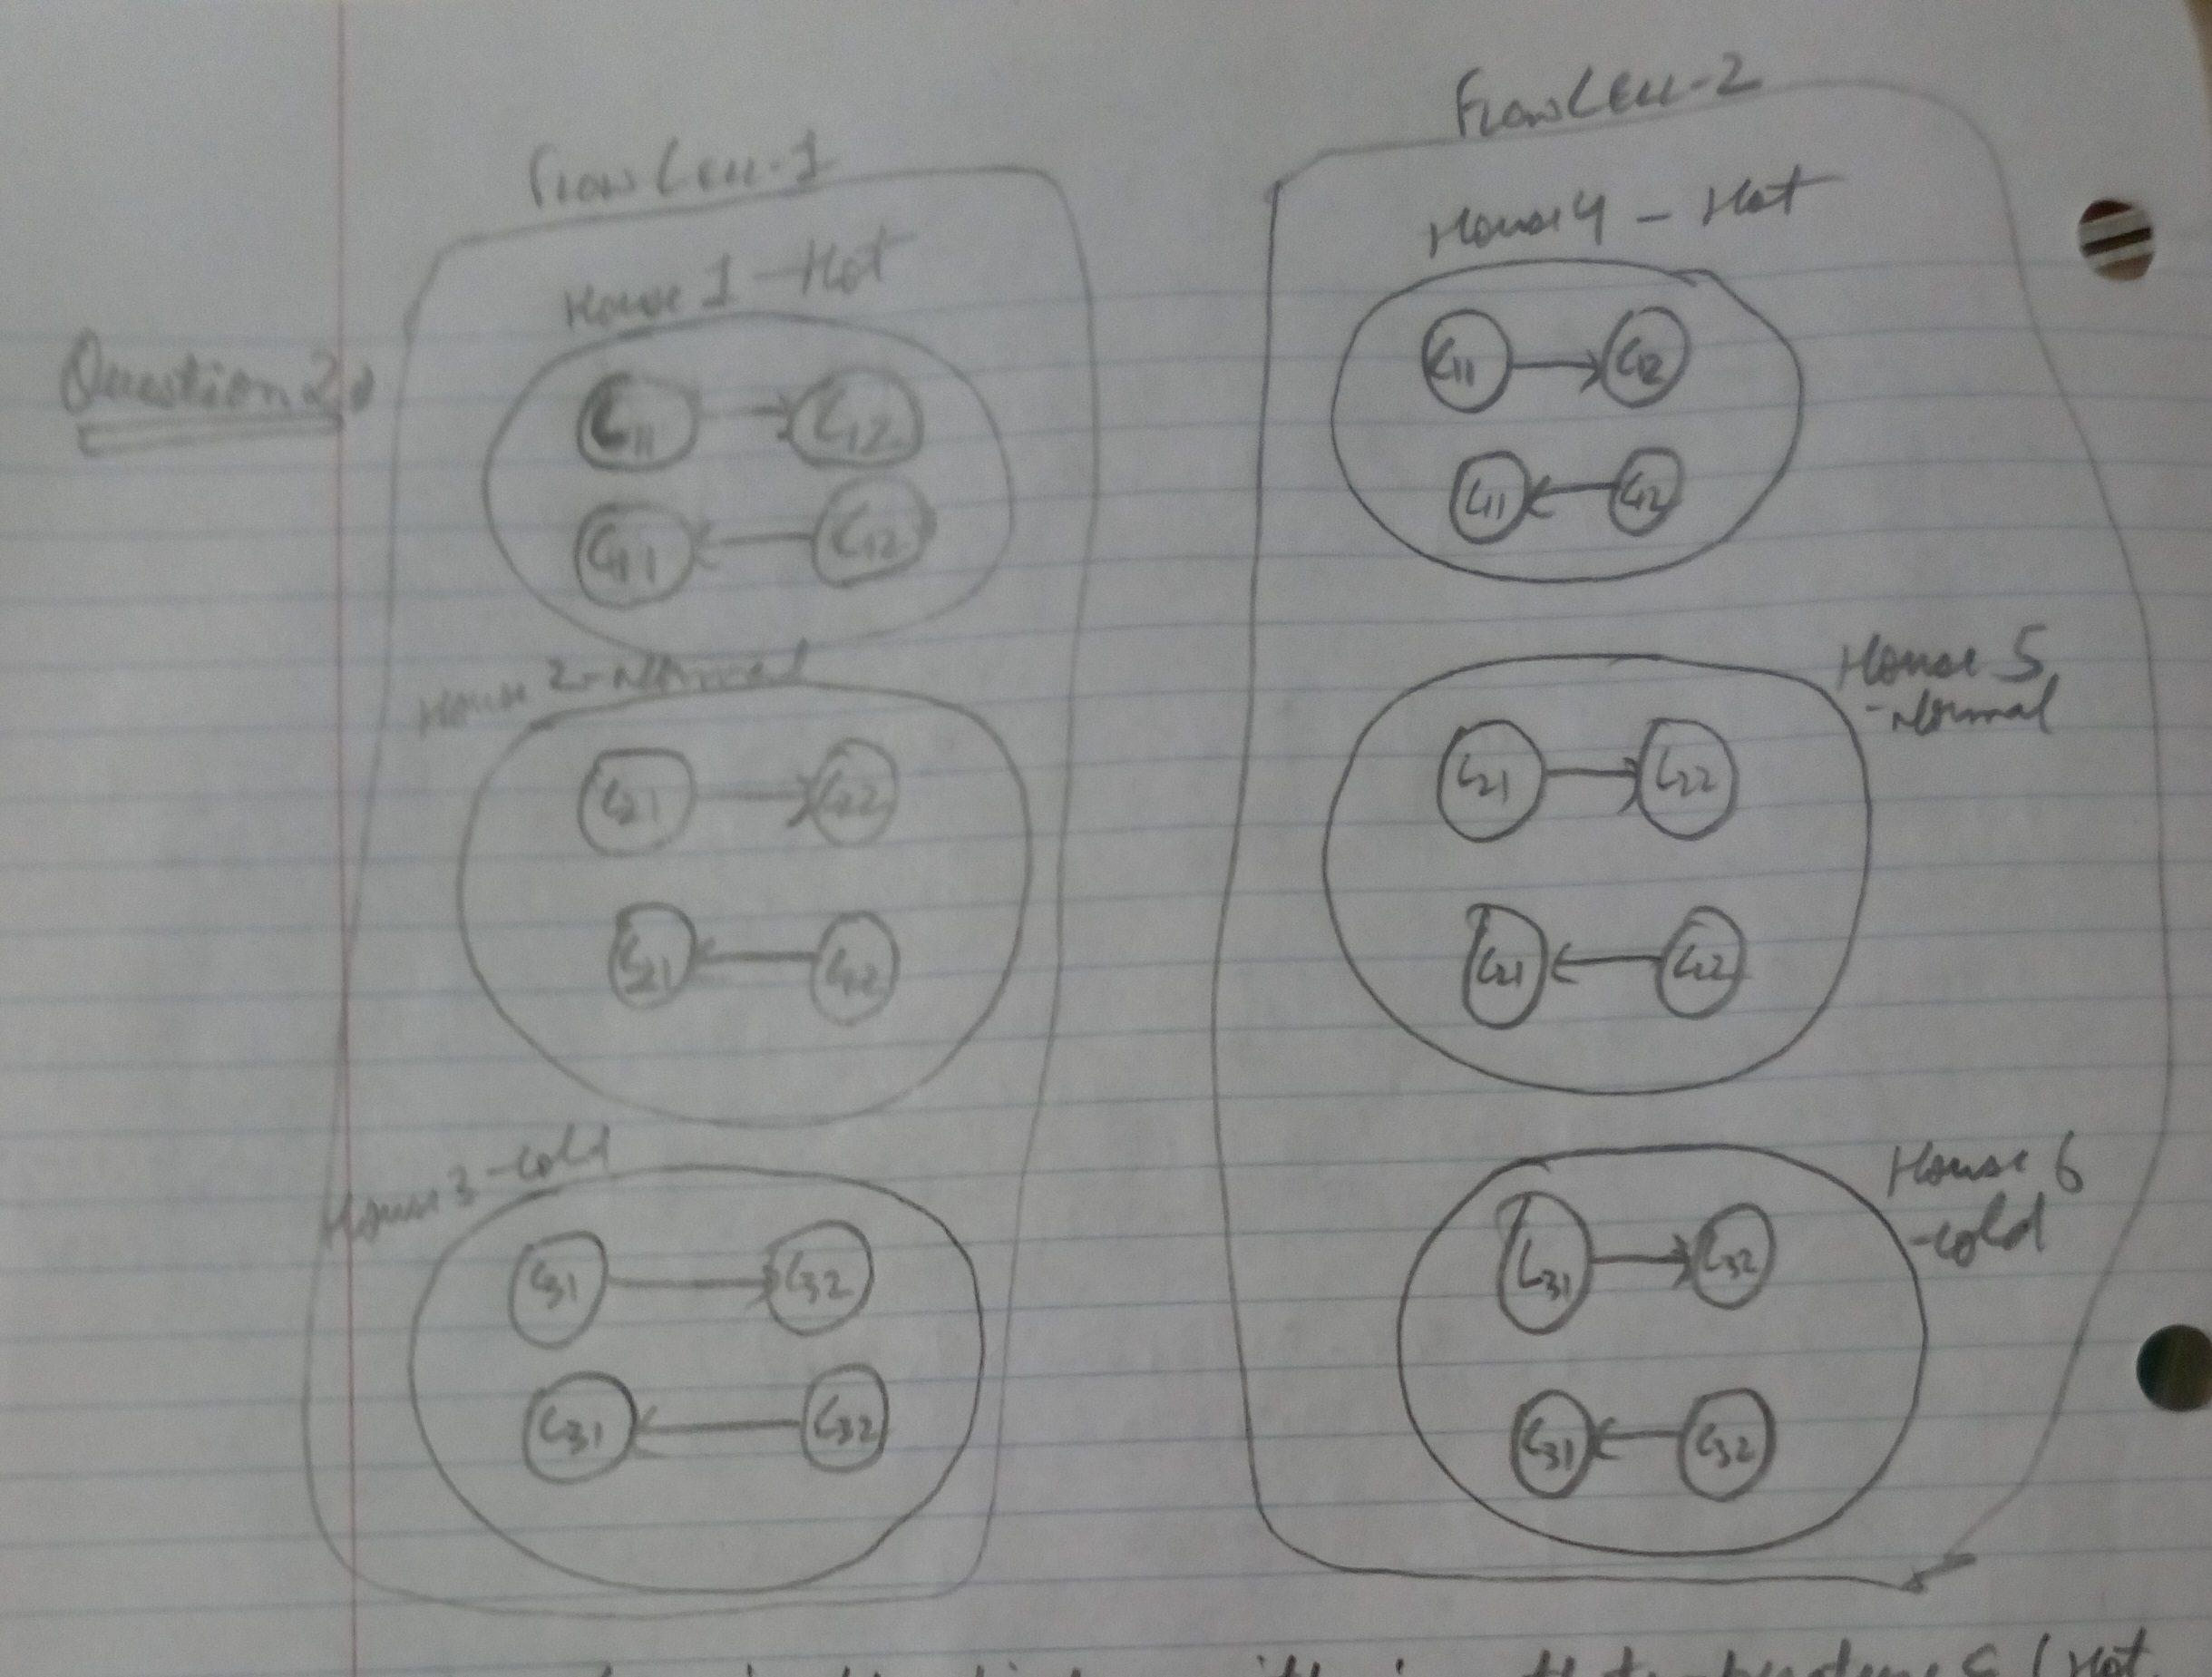 Question 2
FlowCell-1
House 1 - Hot
C11 C12
C11 C12
House 2 - Normal
C21 C22
C21 C22
House 3 - cold
C31 C32
C31 C32
FlowCell-2
House 4 - Hot
C11 C12
C11 C12
House 5
- Normal
C21 C22
C21 C22
House 6
- cold
C31 C32
C31 C32